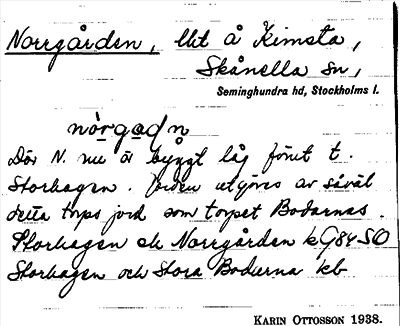 Norrgården, lht å Kimsta,
Skånella sn,
Seminghundra hd, Stockholms l.
nòrgadn
Där N. nu är byggt låg förut t.
Storhagen. Jorden utgöres av såväl
detta torps jord som torpet Bodarnas.
Storhagen och Norrgården k G84SO
Storhagen och Stora Bodarna kb
KARIN OTTOSSON 1938.